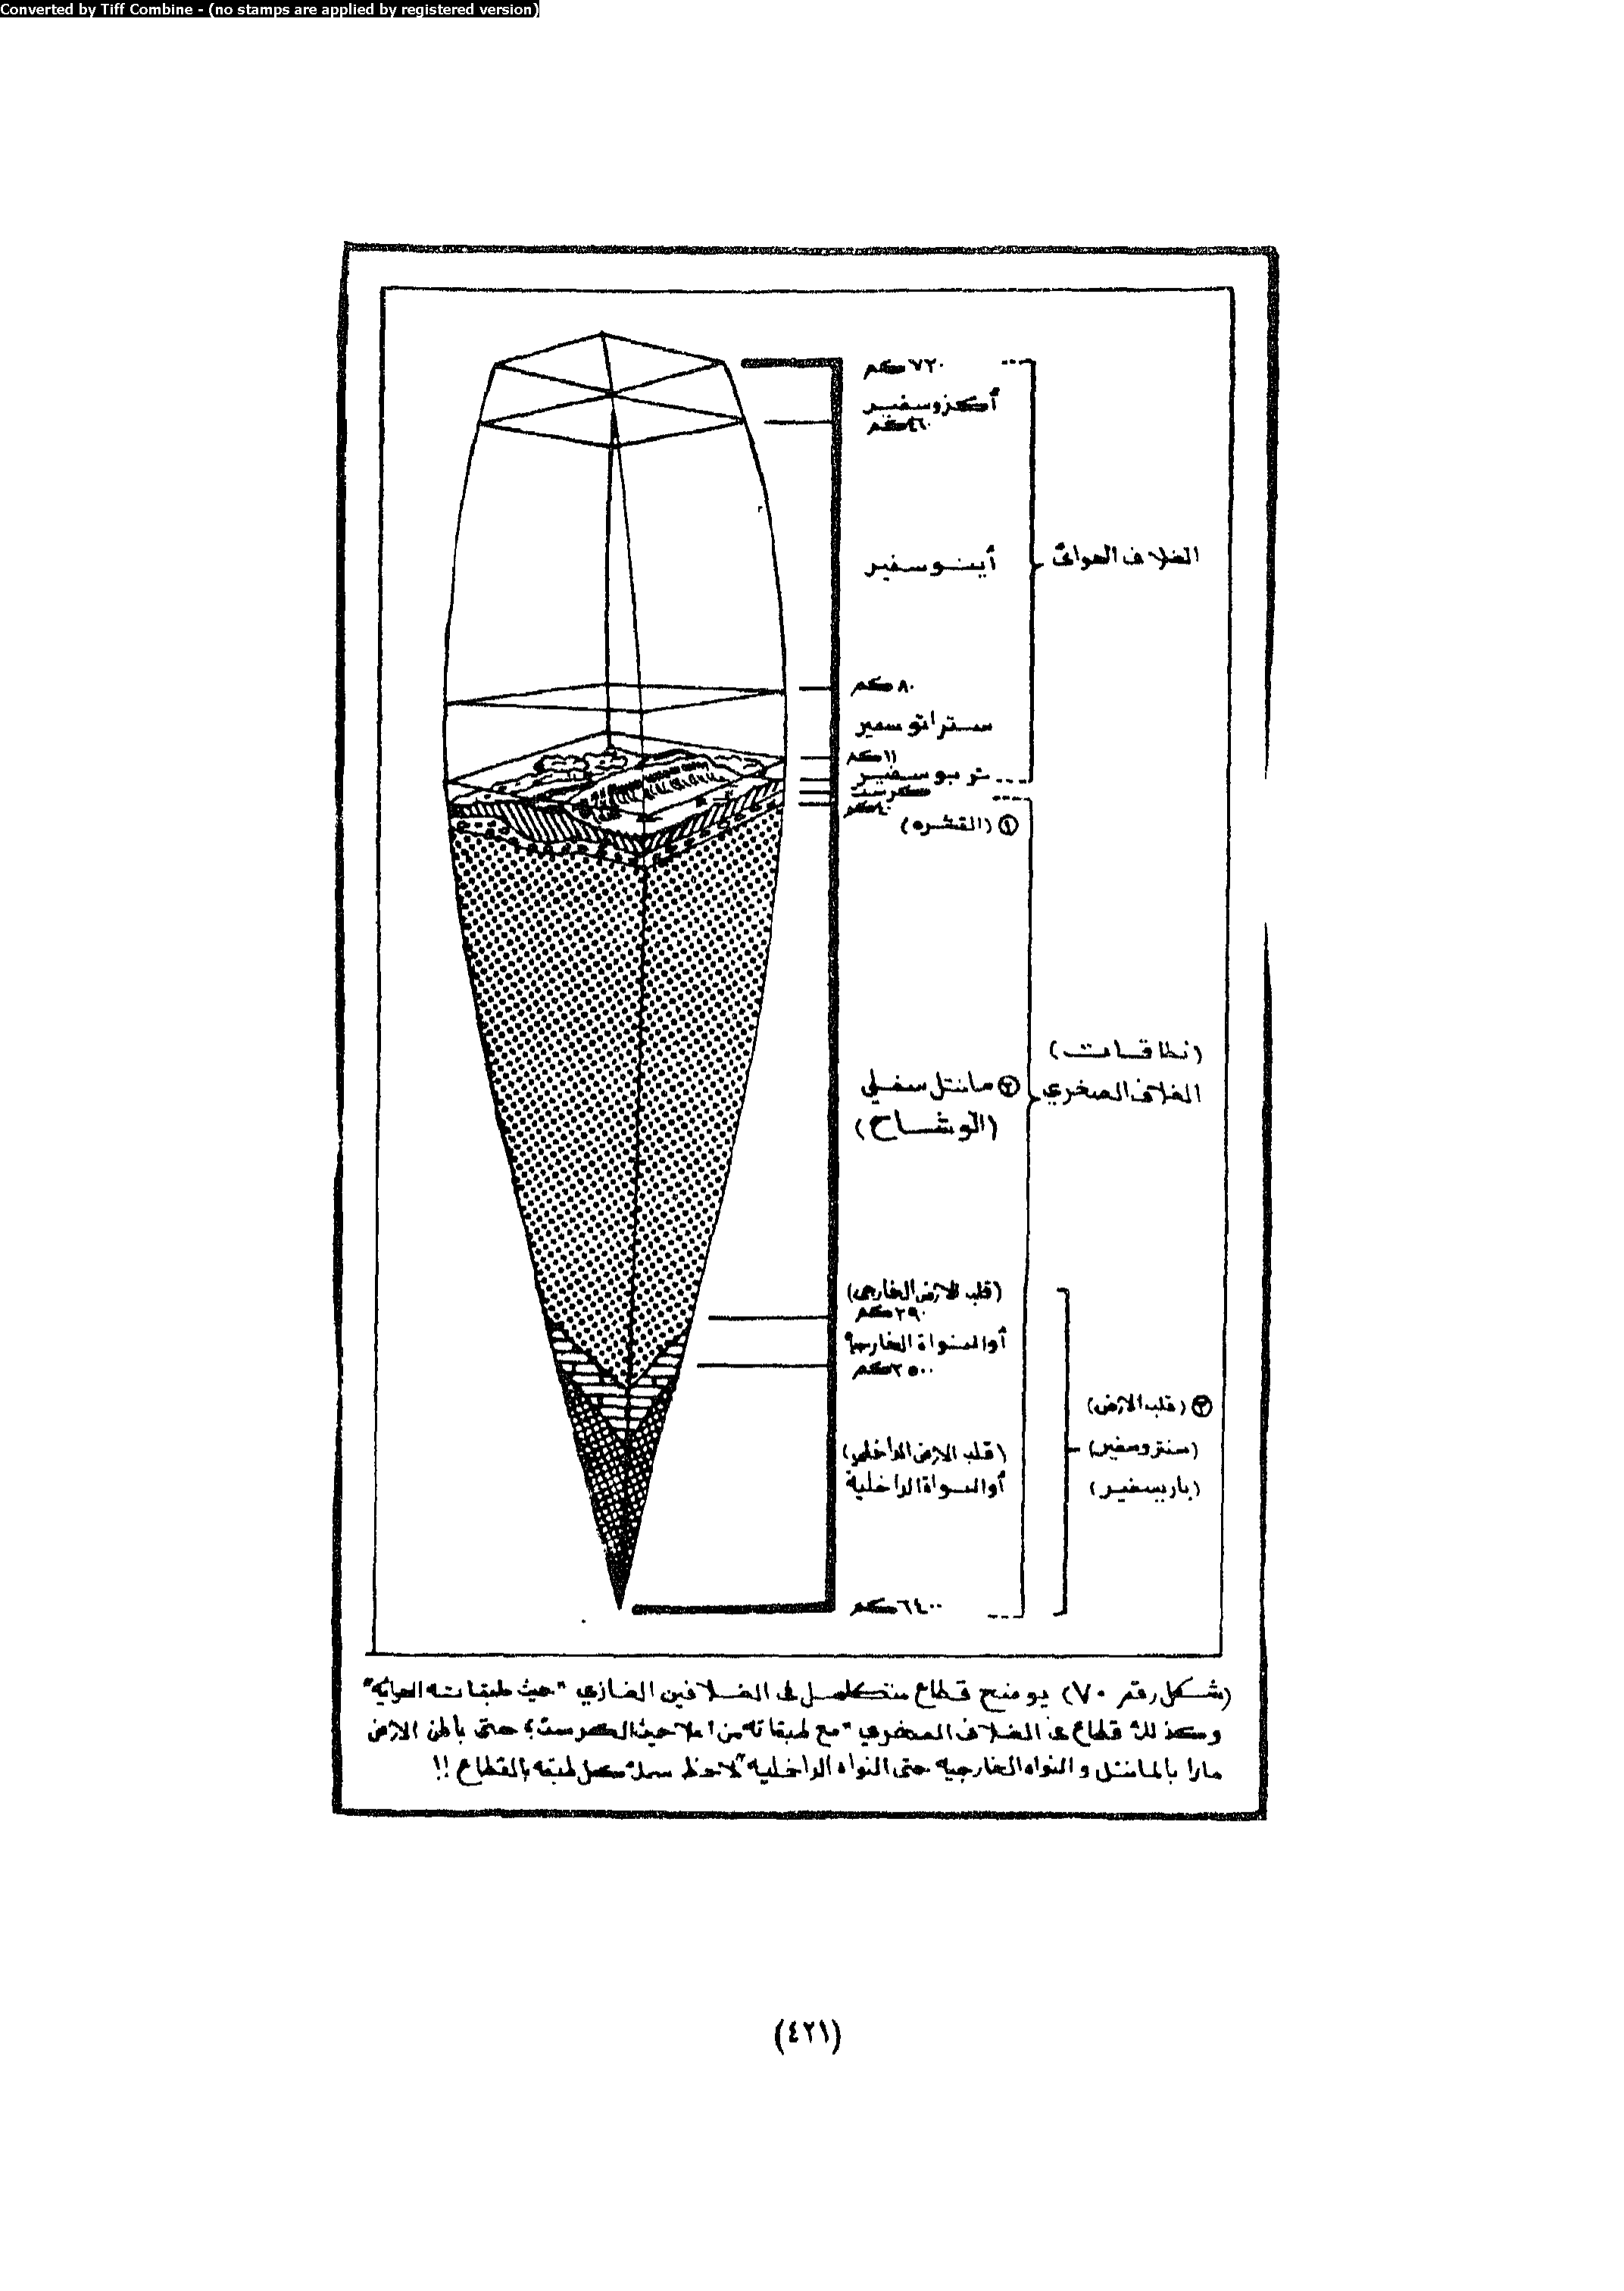 Converted by Tiff Combine - (no stamps are applied by registered version)
٧٢٠ كم
أكزوسفير
٤٦٠ كم
أينوسفير
الغلاف الهوائى
٨٠ كم
ستراتوسفير
١١ كم
تربوسفير
كرست
٤٠ كم
١ (القشره)
(نطاقات)
الغلاف الصخري
٢ مانتل سفلي
(الوشاح)
(قلب الارض الخارجى)
٢٩٠ كم
أو النواة الخارجية
٣٥٠٠ كم
٣ (قلب الارض)
(سنتروسفير)
(باريسفير)
(قلب الارض الداخلى)
أو النواة الداخلية
٦٤٠٠ كم
(شكل رقم ٧٠) يوضح قطاع متكامل فى الغلافين الغازي "حيث طبقاته الهوائية"
وكذلك قطاع فى الغلاف الصخري "مع طبقاته من اعلا حيث الكرست؛ حتى باطن الارض
مارا بالمانتل والنواه الخارجيه حتى النواه الداخليه" لاحظ سمك كل طبقه بالقطاع !!
(٤٢١)